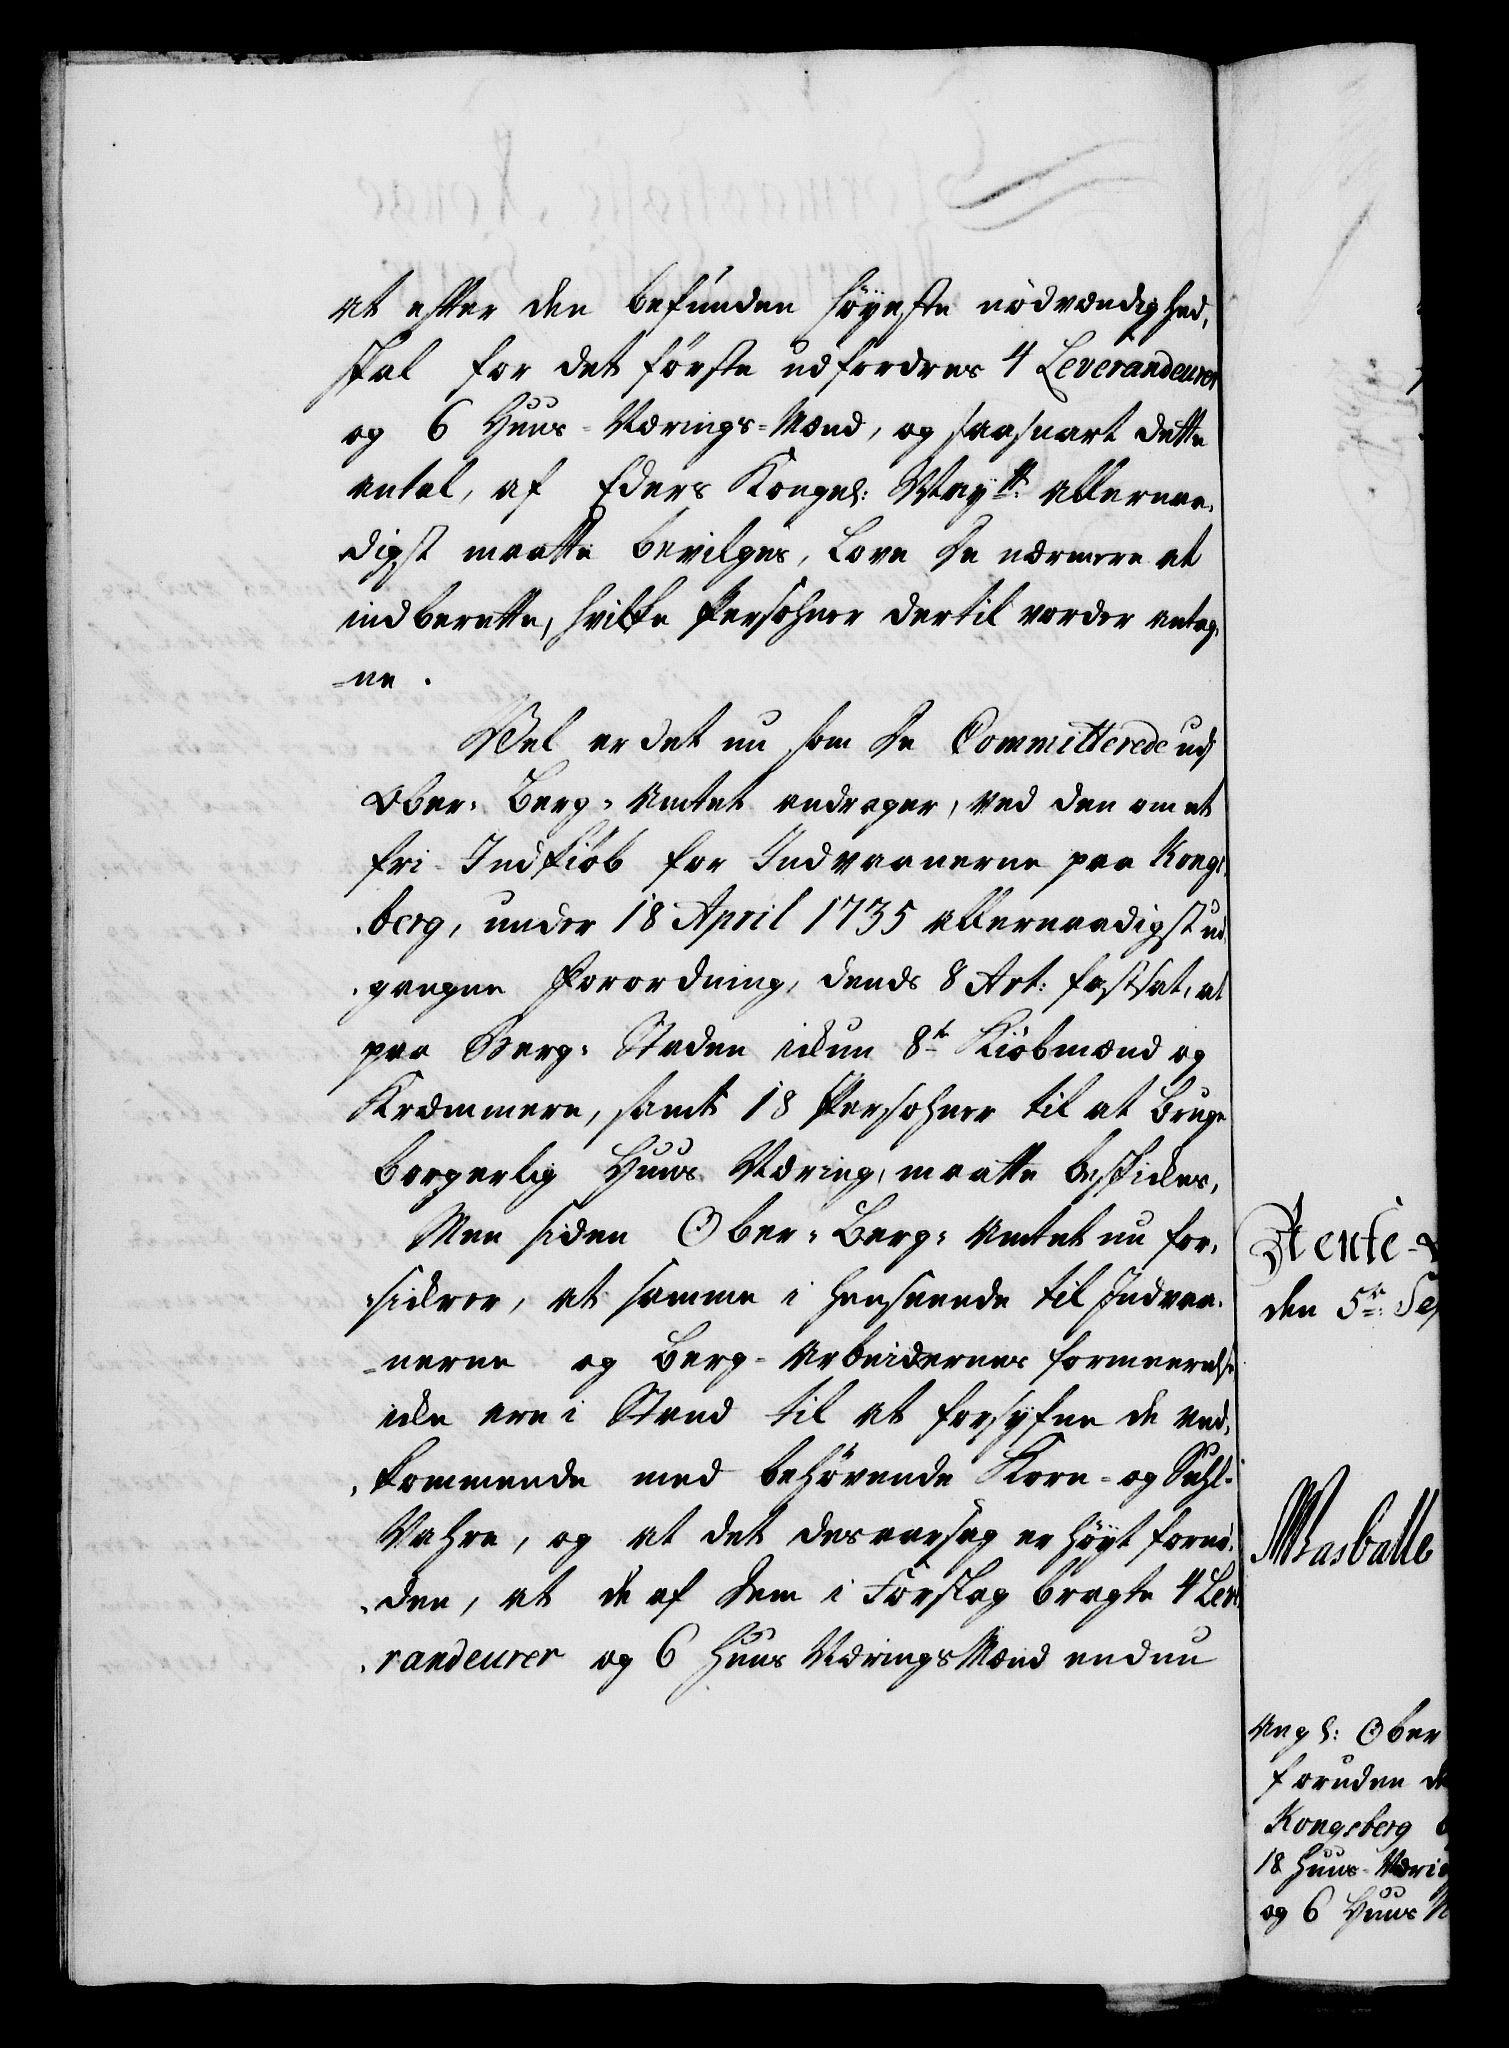 at efter den befunden høyeste nødvændighed,
skal for det første udfordres 4 Leverandeurer
og 6 Huus-Nærings-Mænd, og saasnart dette
antal, af Eders Kongel: May:tt allernaa-
digst maatte bevilges, Love De nærmere at
indberette, hvilke Persohner dertil vorder antag-
-ne.
Vel er det nu som De Committerede ud
Ober-Berg-Amtet andrager, ved den om et
fri Indkiøb for Indvaanerne paa Kongs-
-berg, under 18 April 1735 allernaadigst ud-
-gangne Forordning, dends 8 Art: fastsat, at
paa Berg-Staden ikkun 8te Kiöbmænd og
Kræmmere, samt 18 Persohner til at bruge
borgerlig Huus Næring, maatte beskikkes,
Men siden Ober-Berg-Amtet nu for-
-sikrer, at samme i henseende til Indvaa-
-nerne og Berg-Arbeidernes formeerelse
ikke ere i Stand til at forsyne de ved-
-kommende med behövende Korn- og Fehl-
Vahre, og at det desaarsag er høyt fornö-
-den, at de af dem i Forslag bragte 4 Leve-
-randeurer og 6 Huus Nærings Mænd endnu
Rente-
den 5te: Se
Masballe
Angl: Ober
foruden de
Kongsberg b
18 Huus-Næri
og 6 Huus N